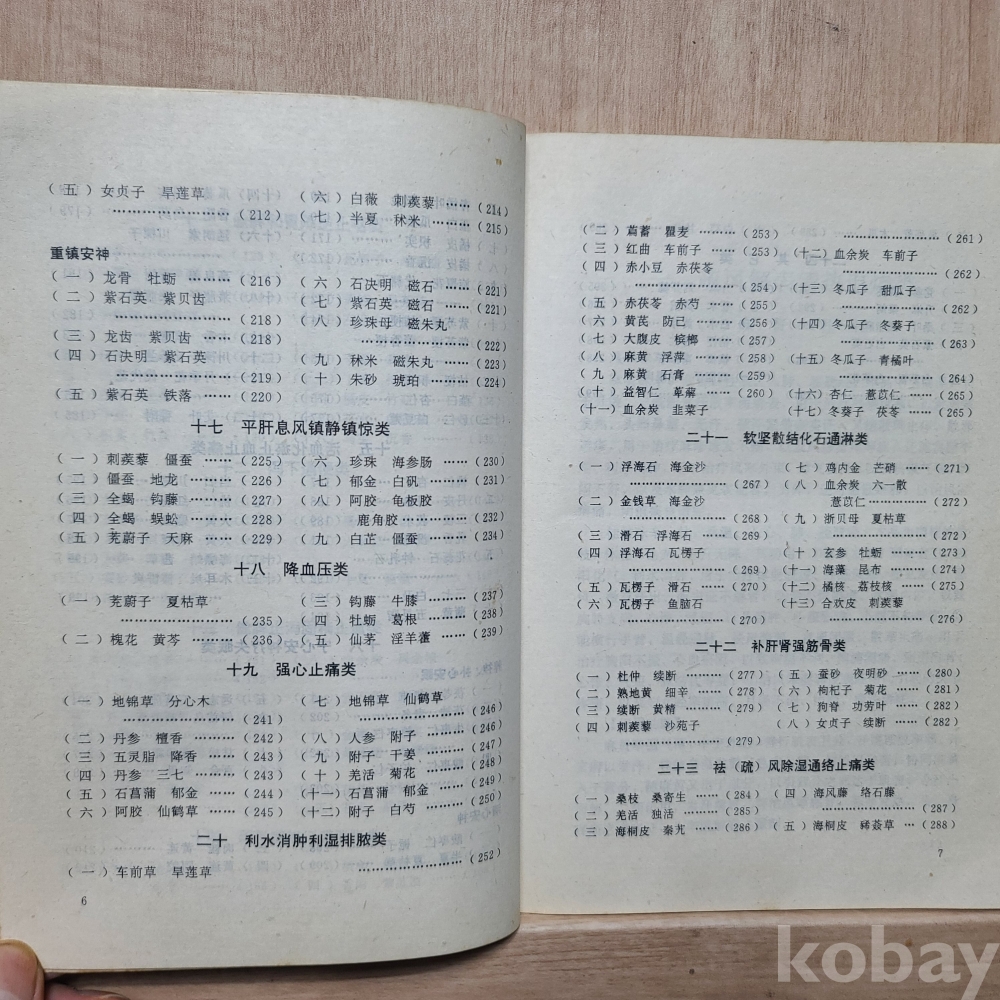 （五）女贞子 旱莲草
……………………（212）
（六）白薇 刺蒺藜
……（214）
（七）半夏 秫米 ……（215）
重镇安神
（一）龙骨 牡蛎 ……（216）
（二）紫石英 紫贝齿
……………………（218）
（三）龙齿 紫贝齿 ……（218）
（四）石决明 紫石英
……………………（219）
（五）紫石英 铁落 ……（220）
（六）石决明 磁石 ……（221）
（七）紫石英 磁石 ……（221）
（八）珍珠母 磁朱丸
……………………（222）
（九）秫米 磁朱丸 ……（223）
（十）朱砂 琥珀 ……（224）
十七 平肝息风镇静镇惊类
（一）刺蒺藜 僵蚕 ……（225）
（二）僵蚕 地龙 ……（226）
（三）全蝎 钩藤 ……（227）
（四）全蝎 蜈蚣 ……（228）
（五）茺蔚子 天麻 ……（229）
（六）珍珠 海参肠 ……（230）
（七）郁金 白矾 ……（231）
（八）阿胶 龟板胶
鹿角胶 ……（232）
（九）白芷 僵蚕 ……（234）
十八 降血压类
（一）茺蔚子 夏枯草
……………………（235）
（二）槐花 黄芩 ……（236）
（三）钩藤 牛膝 ……（237）
（四）牡蛎 葛根 ……（238）
（五）仙茅 淫羊藿 ……（239）
十九 强心止痛类
（一）地锦草 分心木
……………………（241）
（二）丹参 檀香 ……（242）
（三）五灵脂 降香 ……（243）
（四）丹参 三七 ……（243）
（五）石菖蒲 郁金 ……（244）
（六）阿胶 仙鹤草 ……（245）
（七）地锦草 仙鹤草
……………………（246）
（八）人参 附子 ……（246）
（九）附子 干姜 ……（247）
（十）羌活 菊花 ……（248）
（十一）石菖蒲 郁金 ……（249）
（十二）附子 白芍 ……（250）
二十 利水消肿利湿排脓类
（一）车前草 旱莲草
……………………（252）
6
（二）萹蓄 瞿麦 ……（253）
（三）红曲 车前子 ……（253）
（四）赤小豆 赤茯苓
……………………（254）
（五）赤茯苓 赤芍 ……（255）
（六）黄芪 防己 ……（256）
（七）大腹皮 槟榔 ……（257）
（八）麻黄 浮萍 ……（258）
（九）麻黄 石膏 ……（259）
（十）益智仁 萆薢 ……（260）
（十一）血余炭 韭菜子
……………………（261）
（十二）血余炭 车前子
……………………（262）
（十三）冬瓜子 甜瓜子
……………………（262）
（十四）冬瓜子 冬葵子
……………………（263）
（十五）冬瓜子 青橘叶
……………………（264）
（十六）杏仁 薏苡仁 ……（265）
（十七）冬葵子 茯苓 ……（265）
二十一 软坚散结化石通淋类
（一）浮海石 海金沙
……………………（267）
（二）金钱草 海金沙
……………………（268）
（三）滑石 浮海石 ……（269）
（四）浮海石 瓦楞子
……………………（269）
（五）瓦楞子 滑石 ……（270）
（六）瓦楞子 鱼脑石
……………………（270）
（七）鸡内金 芒硝 ……（271）
（八）血余炭 六一散
薏苡仁 ……（272）
（九）浙贝母 夏枯草
……………………（272）
（十）玄参 牡蛎 ……（273）
（十一）海藻 昆布 ……（274）
（十二）橘核 荔枝核 ……（275）
（十三）合欢皮 刺蒺藜
……………………（276）
二十二 补肝肾强筋骨类
（一）杜仲 续断 ……（277）
（二）熟地黄 细辛 ……（278）
（三）续断 黄精 ……（279）
（四）刺蒺藜 沙苑子
……………………（279）
（五）蚕砂 夜明砂 ……（280）
（六）枸杞子 菊花 ……（281）
（七）狗脊 功劳叶 ……（282）
（八）女贞子 续断 ……（282）
二十三 祛（疏）风除湿通络止痛类
（一）桑枝 桑寄生 ……（284）
（二）羌活 独活 ……（285）
（三）海桐皮 秦艽 ……（286）
（四）海风藤 络石藤
……………………（287）
（五）海桐皮 豨莶草 ……（288）
7
kobay